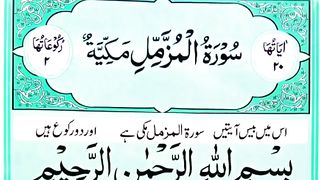 اٰيَاتُهَا ٢٠
سُوْرَةُ الْمُزَّمِّلِ مَكِّيَّةٌ
رُكُوْعَاتُهَا ٢
اس میں بیس آیتیں سورۃ المزمل مکی ہے اور دو رکوع ہیں
بِسْمِ اللّٰهِ الرَّحْمٰنِ الرَّحِيْمِ